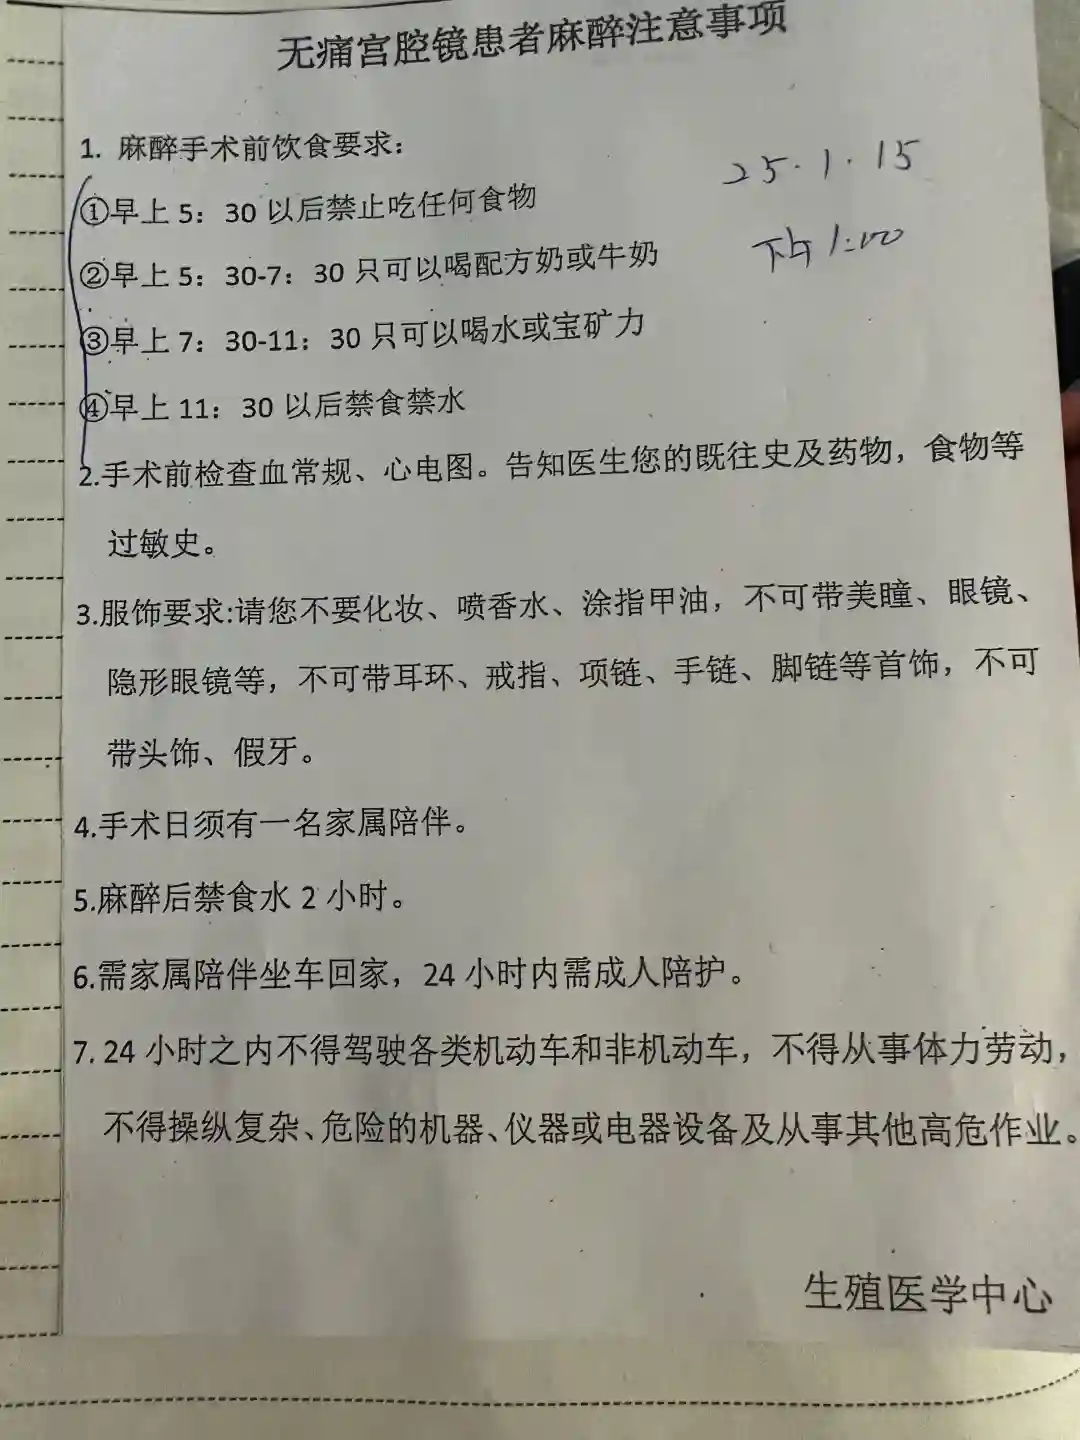 无痛宫腔镜患者麻醉注意事项
1. 麻醉手术前饮食要求：
25.1.15
①早上 5：30 以后禁止吃任何食物
下午 1:00
②早上 5：30-7：30 只可以喝配方奶或牛奶
③早上 7：30-11：30 只可以喝水或宝矿力
④早上 11：30 以后禁食禁水
2.手术前检查血常规、心电图。告知医生您的既往史及药物，食物等
过敏史。
3.服饰要求:请您不要化妆、喷香水、涂指甲油，不可带美瞳、眼镜、
隐形眼镜等，不可带耳环、戒指、项链、手链、脚链等首饰，不可
带头饰、假牙。
4.手术日须有一名家属陪伴。
5.麻醉后禁食水 2 小时。
6.需家属陪伴坐车回家，24 小时内需成人陪护。
7. 24 小时之内不得驾驶各类机动车和非机动车，不得从事体力劳动，
不得操纵复杂、危险的机器、仪器或电器设备及从事其他高危作业。
生殖医学中心